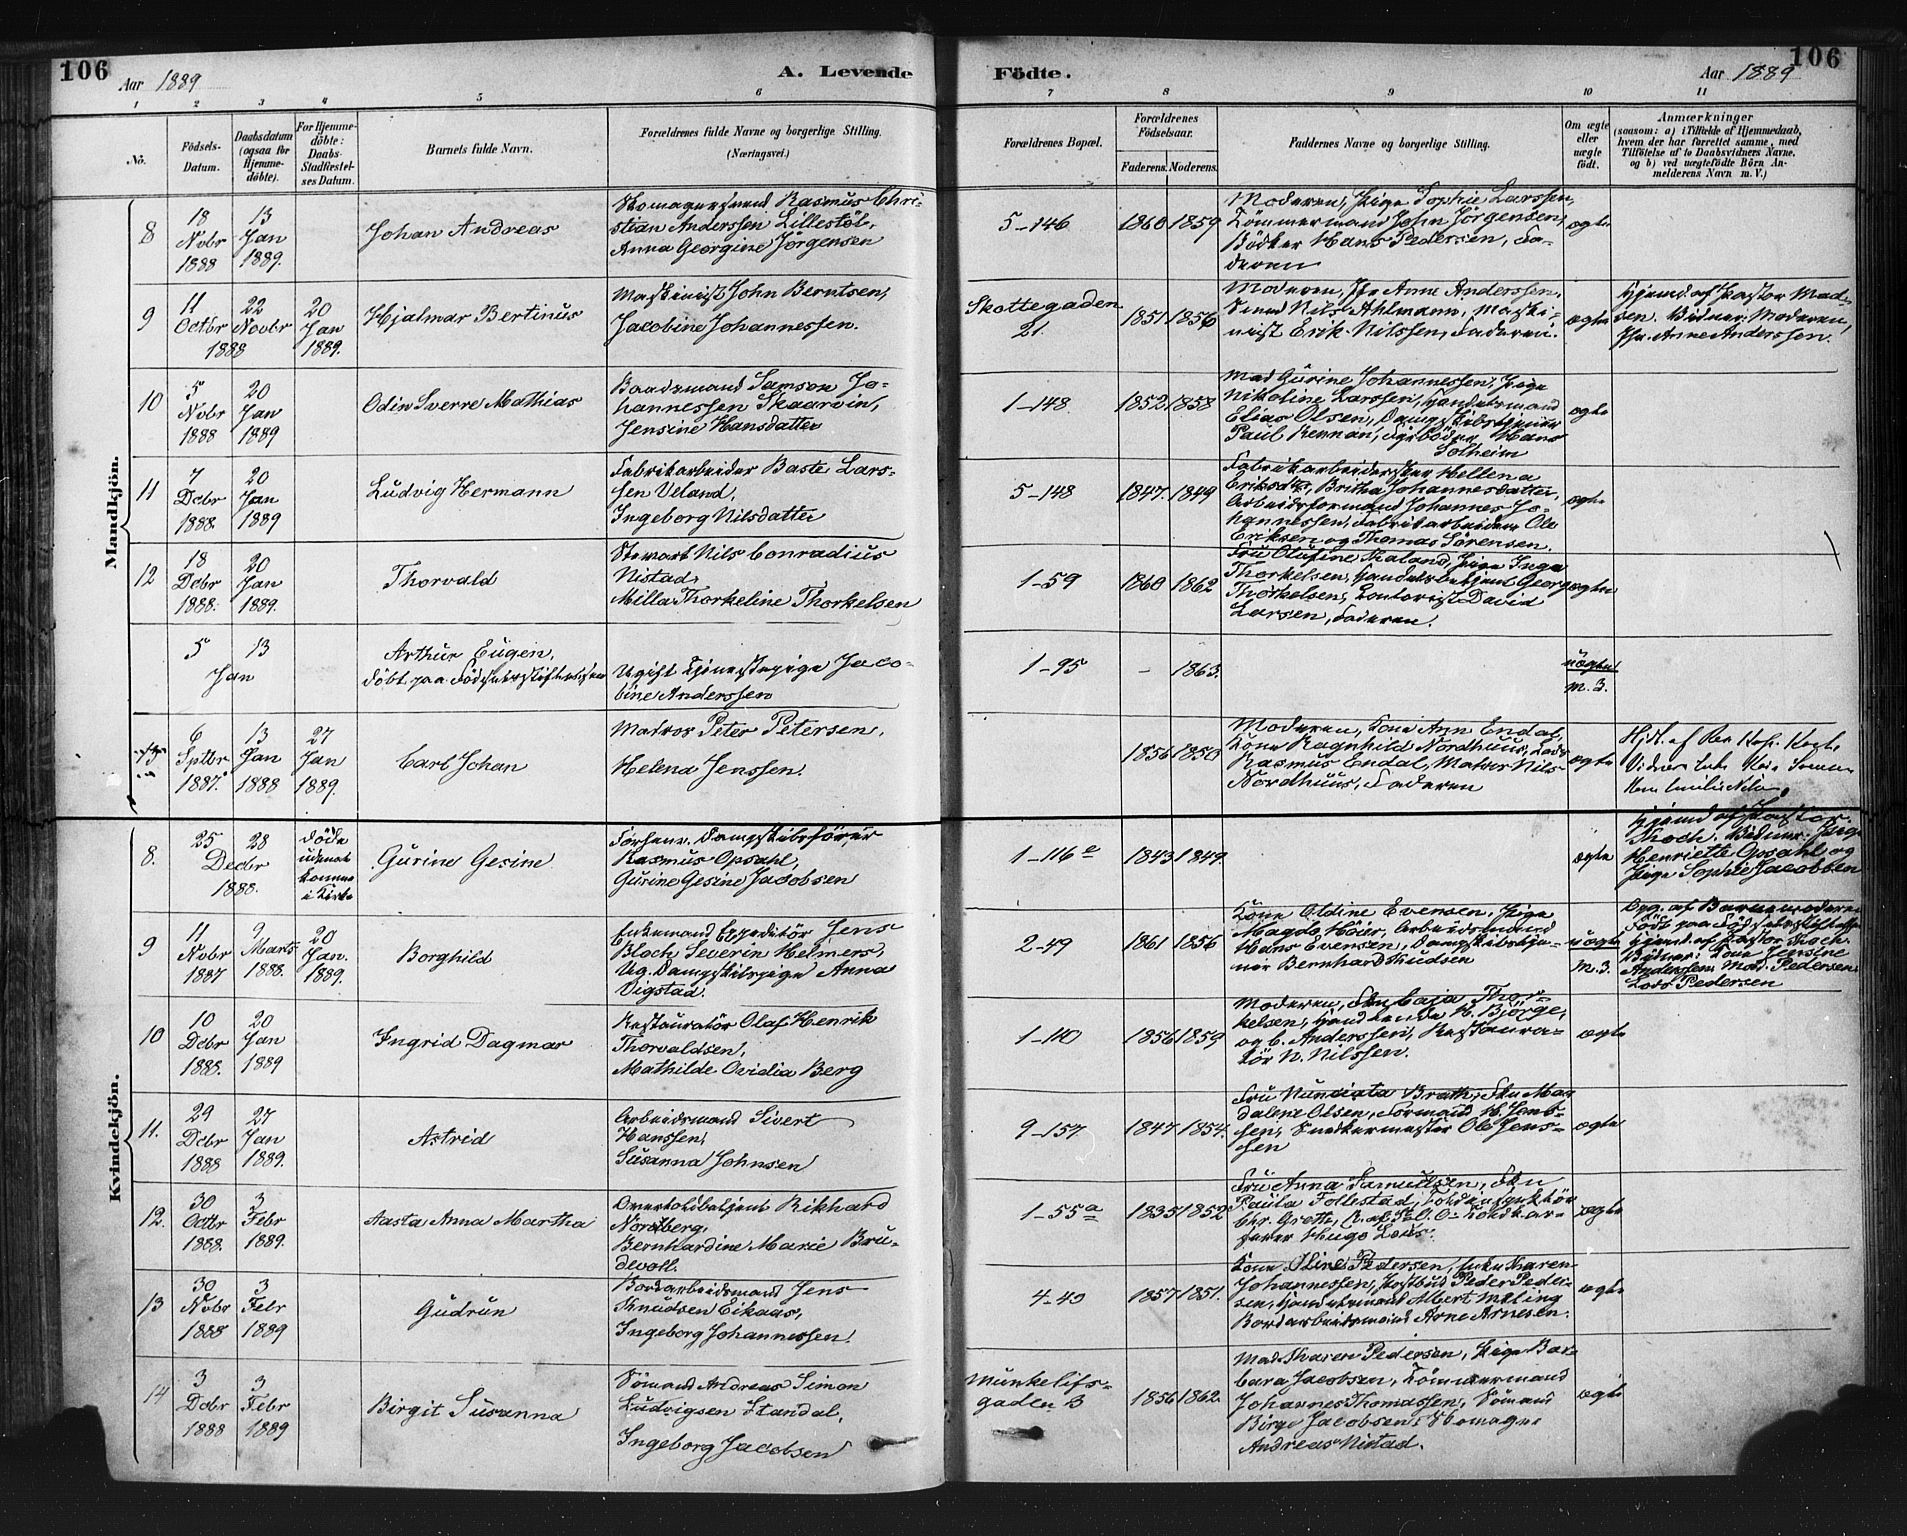 106
Aar 1889
A. Levende
Födte.
Aar 1889
106
1 2 3 4 5 6 7 8 9 10 11
No.
Födsels-
Datum.
Daabsdatum
(ogsaa for
Hjemme-
döbte).
For Hjemme-
döbte:
Daabs-
Stadfæstel-
ses Datum.
Barnets fulde Navn.
Forældrenes fulde Navne og borgerlige Stilling.
(Næringsvei.)
Forældrenes Bopæl.
Forældrenes
Födselsaar.
Faderens. Moderens.
Faddernes Navne og borgerlige Stilling.
Om ægte
eller
uægte
födt.
Anmærkninger
(saasom: a) i Tilfælde af Hjemmedaab,
hvem der har forrettet samme, med
Tilföielse af to Daabsvidners Navne,
og b) ved uægtefödte Börn An-
melderens Navn m. V.)
Mandkjön.
8
18
Novbr
1888
13
Jan
1889.
Johan Andreas
Skomagersvend Rasmus Chri-
stian Anderssen Lillestöl,
Anna Georgine Jörgensen
5-146
1860 1859
Moderen, Pige Sophie Larssen,
Tömmermand John Jörgensen,
Bödker Hans Pedersen, Fa-
deren
ægte
9
11
Octbr
22
Novbr
1888
20
Jan
1889.
Hjalmar Bertinus
Maskinist John Berntsen,
Jacobine Johannessen.
Skottegaden
21.
1851 1856
Moderen, Frk Anne Anderssen,
Svend Nils Ahlmann, Maski-
nist Erik Nilssen, Faderen.
ægte
Hjemd af Pastor Mad-
sen. Vidner: Moderen,
Frk. Anne Anderssen.
10
5
Novbr
1888
20
Jan
1889
Odin Sverre Mathias
Baadsmand Samson Jo-
hannessen Skaarvin,
Jensine Hansdatter
1-148.
1852 1858
Mad Gurine Johannessen, Pige
Nikoline Larssen, Handelsmand
Elias Olsen,
Paul Rennan, Fyrböder Hans
Solheim
ægte
11
7
Debr
1888.
20
Jan
1889
Ludvig Hermann
Fabrikarbeider Baste Lars-
sen Veland,
Ingeborg Nilsdatter
5-148
1847. 1849
Fabrikarbeidersker Hellena
Eriksdtr, Britha Johannesdatter,
Arbeidsformand Johannes Jo-
hannessen, Fabrikarbeidere Ole
Eriksen og Thomas Sörensen.
ægte
12
18
Debr
1888.
20
Jan
1889.
Thorvald
Stewart Nils Conradius
Nistad,
Milla Thorkeline Thorkelsen
1-59
1860 1862
Fru Olufine Skaland, Pige Inga
Thorkelsen, Handelsbetjent Georg
Thorkelsen, Contorist David
Larsen, Faderen.
ægte
5 13
Jan
Arthur Eugen,
döbt paa Födselsstiftelsen
Ugift Tjenestepige Jaco-
bine Anderssen
1-95
-
1863.
uægte
m. 3.
13
6
Sptbr
1887.
13
Jan
1888
27
Jan
1889.
Carl Johan
Matros Peter Petersen,
Helena Jenssen.
1856 1850
Moderen, Kone Ann Endal,
Kone Ragnhild Nordhuus, Lods
Rasmus Endal, Matros Nils
Nordhuus, Faderen
ægte
Kvindekjön.
8.
25
28
Decbr
1888.
döde
uden at
komme
i Kirke
Gurine Gesine
Forhenv. Dampskibsförer
Rasmus Opsahl,
Gurine Gesine Jacobsen
1-116e
1843 1849.
ægte
Hjemd af Pastor
Koch. Vidner: Pige
Henriette Opsahl og
Pige Sophie Jacobsen
9
11
Novbr
1887
9
Marts
1888.
20
Jan.
1889.
Borghild
Enkemand Expeditör Jens
Bloch Severin Helmers,
Ug. Dampskibspige Anna
Vigstad.
2-49
1861 1856
Kone Oldine Evensen, Pige
Magda Höier, Arbeidsmand
Hans Evensen, Dampskibstje-
ner Bernhard Knudsen
uægte
m. 3.
Opg. af Barnemoderen
Födt paa Födselsstiftelse
Hjemd af Pastor Koch.
Vidner: Kone Jensine
Anderssen, Mad. Pedersen
Lods Pedersen
10
10
Debr
1888.
20
Jan
1889
Ingrid Dagmar
Restauratör Olaf Henrik
Thorvaldsen,
Mathilde Ovidia Berg
1-110
1856 1859
Moderen, Frk Caja Thor-
kelsen, Handlende H. Björge,
og C. Anderssen, Restaura-
tör N. Nilssen.
ægte
11.
29
Debr
1888
27
Jan
1889.
Astrid
Arbeidsmand Sivert
Hanssen,
Susanna Johnsen
9-157
1847 1854.
Fru Nunciata Brath, Fru Mag
dalene Olsen, Formand H. Jens-
sen, Snedkermester Ole Jens-
sen
ægte
12.
30
Octbr
1888.
3
Febr
1889.
Aasta Anna Martha
Overtoldbetjent Rikhard
Nordberg,
Bernhardine Marie Bru-
devoll.
1-55a
1835 1852
Fru Anna Samuelsen, Frk
Paula Follestad, Toldinspektör
Chr. Grette, R. af St. O. O.
Hugo Lous.
ægte
13
30
Novbr
1888
3
Febr
1889
Gudrun
Bordarbeidsmand Jens
Knudsen Eikaas,
Ingeborg Johannessen.
4-40
1857 1851.
Kone Oline Pedersen, Enke Karen
Johannessen, Postbud Peder Peder-
sen, Handelsmand Albert Meling
Bordarbeidsmand Arne Arnesen.
ægte
14
3
Debr
1888
3
Febr
1889
Birgit Susanna
Sömand Andreas Simon
Ludvigsen Standal,
Ingeborg Jacobsen
Munkelifs-
gaden 3
1856 1862.
Mad. Karen Pedersen, Pige Bar-
bara Jacobsen, Tömmermand
Johannes Thomassen, Sömand
Birge Jacobsen, Skomager
Andreas Nistad.
ægte